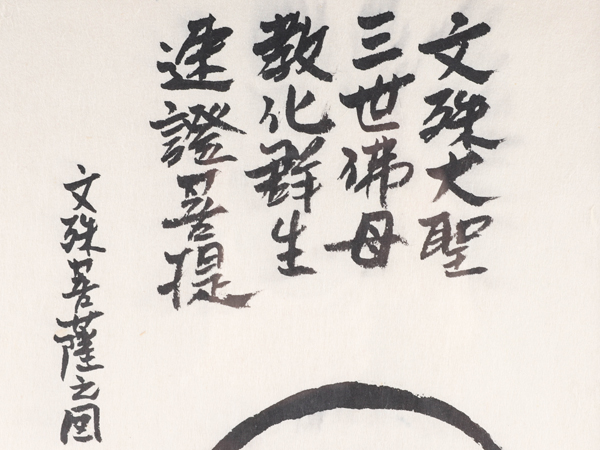 文殊大聖
三世佛母
教化群生
速證菩提
文殊菩薩之図